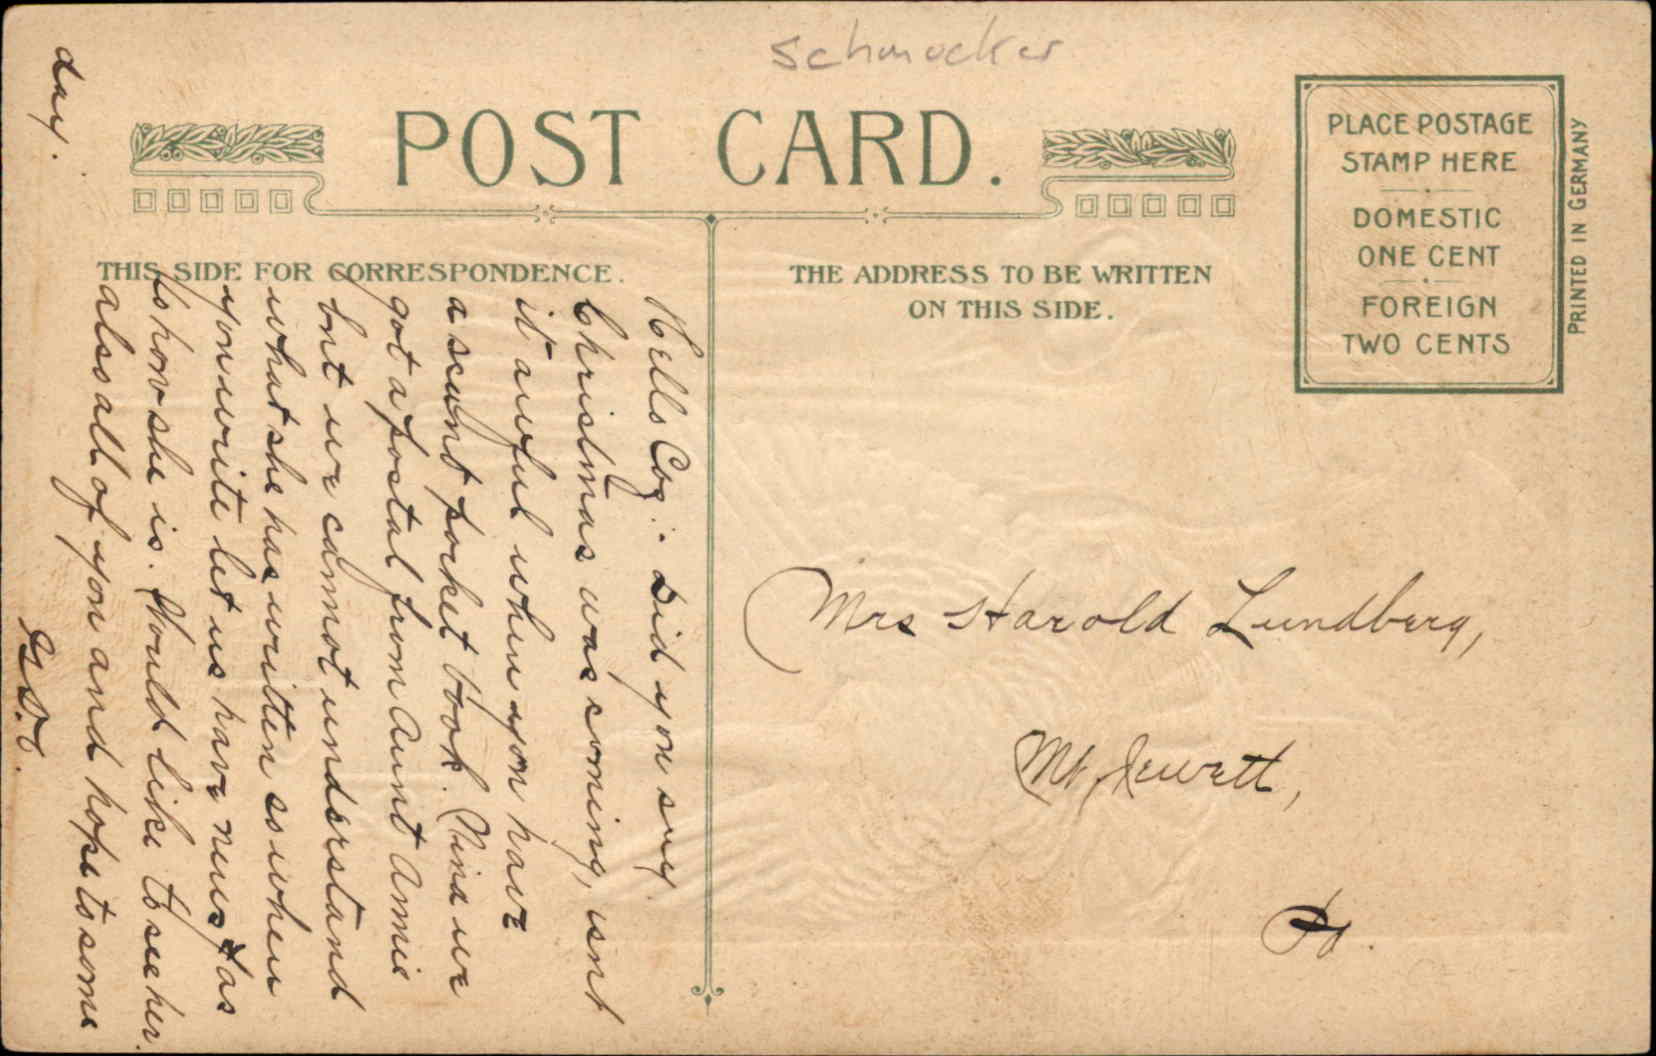 schmucker
POST CARD.
THIS SIDE FOR CORRESPONDENCE.
THE ADDRESS TO BE WRITTEN
ON THIS SIDE.
PLACE POSTAGE
STAMP HERE
DOMESTIC
ONE CENT
FOREIGN
TWO CENTS
PRINTED IN GERMANY
Hello Coz:- Did you say
Christmas was coming, isnt
it awful when you have
a scant pocket book. Nina we
got a postal from Aunt Annie
but we cannot understand
what she has written so when
you write let us have news as
to how she is. Would like to see her
also all of you and hope to some
day.
Mrs Harold Lundberg,
Mt. Jewett,
Pa.